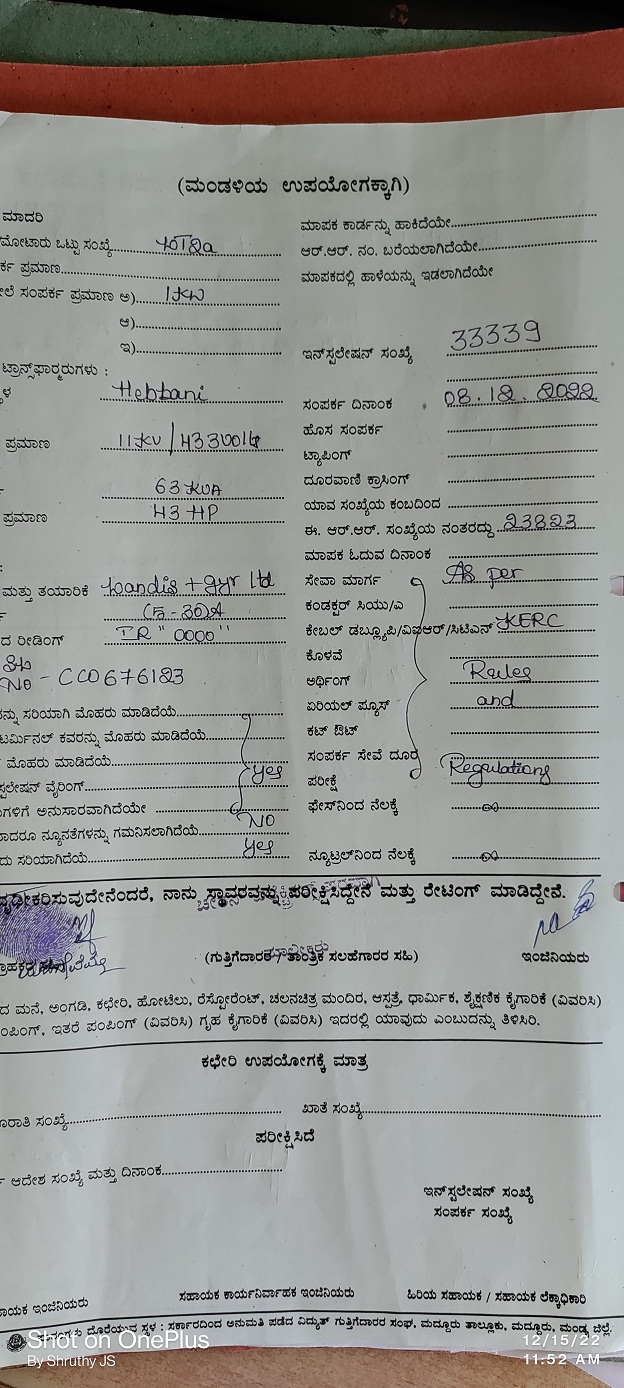 (ಮಂಡಳಿಯ ಉಪಯೋಗಕ್ಕಾಗಿ)
ಮಾದರಿ
ಮೋಟಾರು ಒಟ್ಟು ಸಂಖ್ಯೆ
ಮಾಪಕ ಕಾರ್ಡನ್ನು ಹಾಕಿದೆಯೇ
ರ್ಕ ಪ್ರಮಾಣ
ಆರ್.ಆರ್. ನಂ. ಬರೆಯಲಾಗಿದೆಯೇ
ಲೆ ಸಂಪರ್ಕ ಪ್ರಮಾಣ ಅ) 1KW
ಮಾಪಕದಲ್ಲಿ ಹಾಳೆಯನ್ನು ಇಡಲಾಗಿದೆಯೇ
ಆ)
ಇ)
ಇನ್‌ಸ್ಟಲೇಷನ್ ಸಂಖ್ಯೆ 33339
ಟ್ರಾನ್ಸ್‌ಫಾರ್ಮರುಗಳು :
ಳ Hebbani
ಸಂಪರ್ಕ ದಿನಾಂಕ 08.12.2022
ಪ್ರಮಾಣ 11KV/433Volt
ಹೊಸ ಸಂಪರ್ಕ
ಟ್ಯಾಪಿಂಗ್
63 KVA
ದೂರವಾಣಿ ಕ್ರಾಸಿಂಗ್
ಪ್ರಮಾಣ 43 HP
ಯಾವ ಸಂಖ್ಯೆಯ ಕಂಬದಿಂದ
ಈ. ಆರ್.ಆರ್. ಸಂಖ್ಯೆಯ ನಂತರದ್ದು 23823
ಮಾಪಕ ಓದುವ ದಿನಾಂಕ
ಮತ್ತು ತಯಾರಿಕೆ Landis + gyr ltd
ಸೇವಾ ಮಾರ್ಗ As per
(5-30)A
ಕಂಡಕ್ಟರ್ ಸಿಯು/ಎ
ದ ರೀಡಿಂಗ್ IR "0000"
ಕೇಬಲ್ ಡಬ್ಲ್ಯೂಪಿ/ವಿಐಆರ್/ಸಿಟಿಎನ್ KERC
ಕೊಳವೆ
No - CC0676123
ಅರ್ಥಿಂಗ್ Rules
ನ್ನು ಸರಿಯಾಗಿ ಮೊಹರು ಮಾಡಿದೆಯೆ
ಏರಿಯಲ್ ಫ್ಯೂಸ್ and
ಟರ್ಮಿನಲ್ ಕವರನ್ನು ಮೊಹರು ಮಾಡಿದೆಯೆ
ಕಟ್ ಔಟ್
ಮೊಹರು ಮಾಡಿದೆಯೆ
ಸಂಪರ್ಕ ಸೇವೆ ದೂರ
ಸ್ಟಲೇಷನ್ ವೈರಿಂಗ್ yes
ಪರೀಕ್ಷೆ Regulations
ಗಳಿಗೆ ಅನುಸಾರವಾಗಿದೆಯೇ
ಫೇಸ್‌ನಿಂದ ನೆಲಕ್ಕೆ ∞
ಾದರೂ ನ್ಯೂನತೆಗಳನ್ನು ಗಮನಿಸಲಾಗಿದೆಯೆ NO
ದು ಸರಿಯಾಗಿದೆಯೆ yes
ನ್ಯೂಟ್ರಲ್‌ನಿಂದ ನೆಲಕ್ಕೆ ∞
ದೃಢೀಕರಿಸುವುದೇನೆಂದರೆ, ನಾನು ಸ್ಥಾವರವನ್ನು ಪರೀಕ್ಷಿಸಿದ್ದೇನೆ ಮತ್ತು ರೇಟಿಂಗ್ ಮಾಡಿದ್ದೇನೆ.
(ಗುತ್ತಿಗೆದಾರರ / ತಾಂತ್ರಿಕ ಸಲಹೆಗಾರರ ಸಹಿ)
ಇಂಜಿನಿಯರು
ದ ಮನೆ, ಅಂಗಡಿ, ಕಛೇರಿ, ಹೋಟೆಲು, ರೆಸ್ಟೋರೆಂಟ್, ಚಲನಚಿತ್ರ ಮಂದಿರ, ಆಸ್ಪತ್ರೆ, ಧಾರ್ಮಿಕ, ಶೈಕ್ಷಣಿಕ ಕೈಗಾರಿಕೆ (ವಿವರಿಸಿ)
ಂಪಿಂಗ್, ಇತರೆ ಪಂಪಿಂಗ್ (ವಿವರಿಸಿ) ಗೃಹ ಕೈಗಾರಿಕೆ (ವಿವರಿಸಿ) ಇದರಲ್ಲಿ ಯಾವುದು ಎಂಬುದನ್ನು ತಿಳಿಸಿರಿ.
ಕಛೇರಿ ಉಪಯೋಗಕ್ಕೆ ಮಾತ್ರ
ೂರಾತಿ ಸಂಖ್ಯೆ
ಖಾತೆ ಸಂಖ್ಯೆ
ಪರೀಕ್ಷಿಸಿದೆ
ಆದೇಶ ಸಂಖ್ಯೆ ಮತ್ತು ದಿನಾಂಕ
ಇನ್‌ಸ್ಟಲೇಷನ್ ಸಂಖ್ಯೆ
ಸಂಪರ್ಕ ಸಂಖ್ಯೆ
ಾಯಕ ಇಂಜಿನಿಯರು
ಸಹಾಯಕ ಕಾರ್ಯನಿರ್ವಾಹಕ ಇಂಜಿನಿಯರು
ಹಿರಿಯ ಸಹಾಯಕ / ಸಹಾಯಕ ಲೆಕ್ಕಾಧಿಕಾರಿ
ದೊರೆಯುವ ಸ್ಥಳ : ಸರ್ಕಾರದಿಂದ ಅನುಮತಿ ಪಡೆದ ವಿದ್ಯುತ್ ಗುತ್ತಿಗೆದಾರರ ಸಂಘ, ಮದ್ದೂರು ತಾಲ್ಲೂಕು, ಮದ್ದೂರು, ಮಂಡ್ಯ ಜಿಲ್ಲೆ.
Shot on OnePlus
By Shruthy JS
12/15/22
11:52 AM